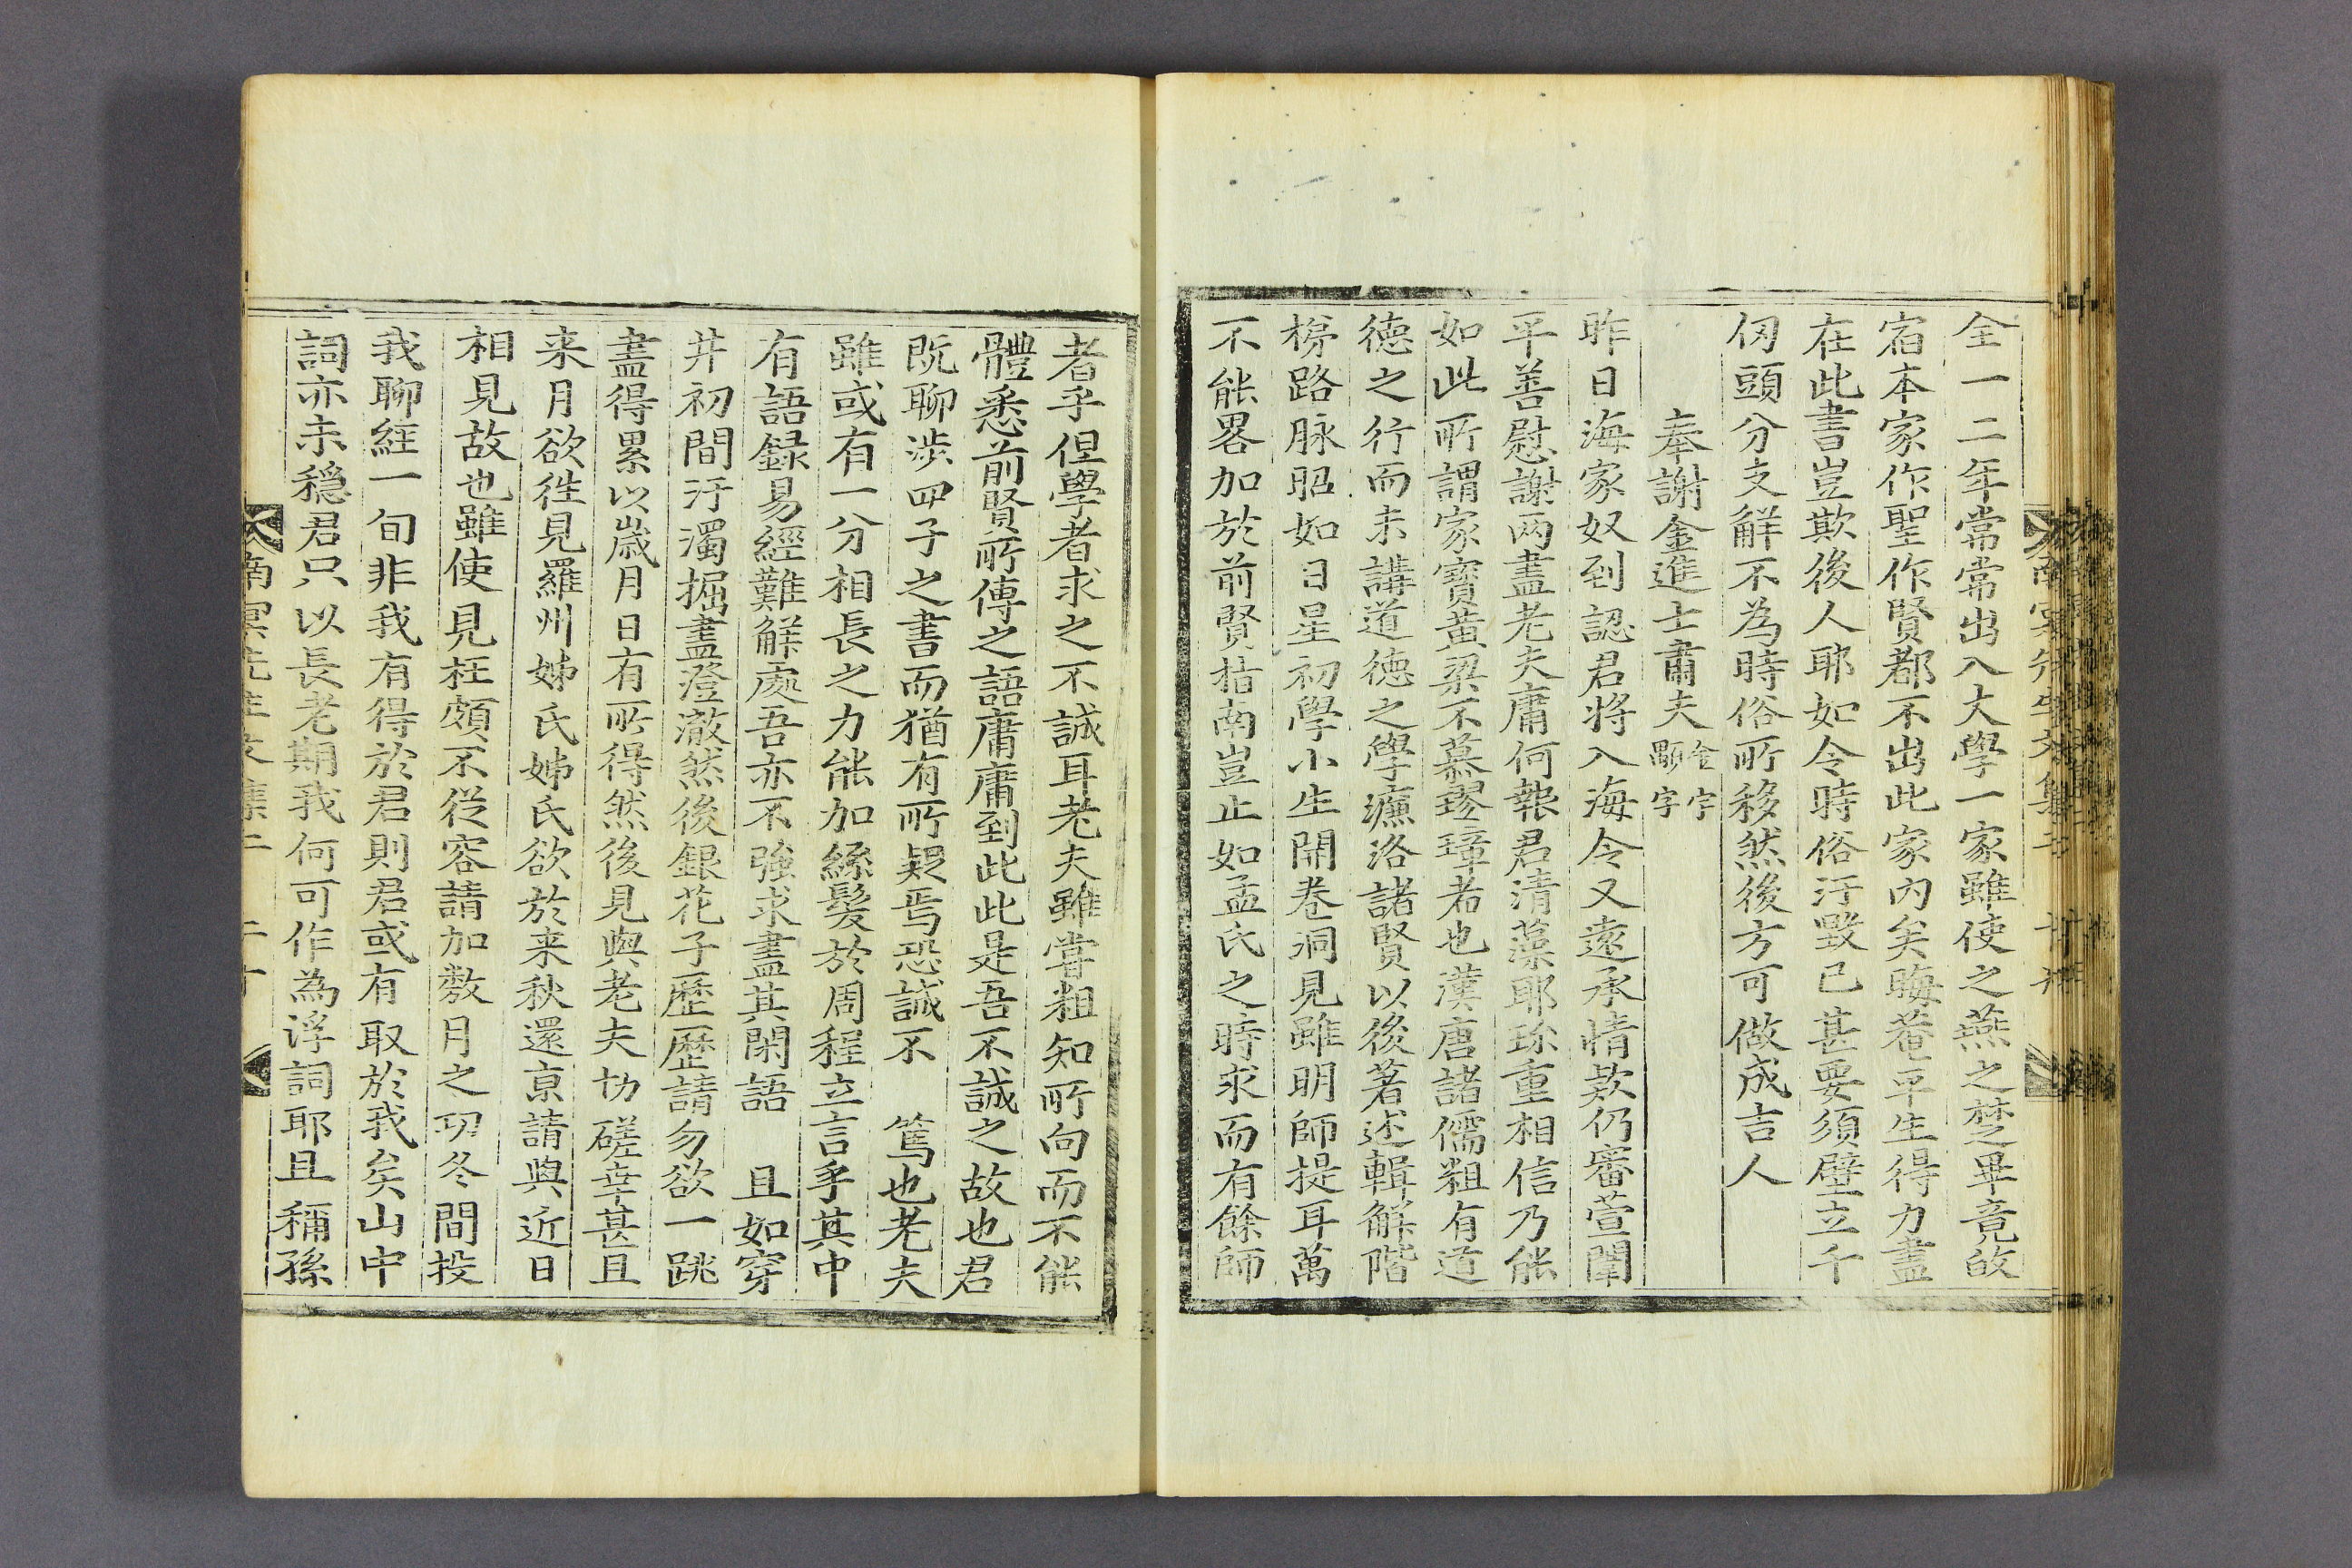 全一二年常常出入大學一家雖使之燕之楚畢竟故
宿本家作聖作賢都不出此家內矣晦菴平生得力盡
在此書豈欺後人耶如今時俗汙毀已甚要須壁立千
仞頭分支解不為時俗所移然後方可做成吉人
奉謝金進士肅夫
金宇
顒字
昨日海家奴到認君將入海今又遠承情款仍審萱闈
平善慰謝两盡老夫庸何報君清藻耶珎重相信乃能
如此所謂家寶黃梁不慕璆璋者也漢唐諸儒粗有道
德之行而未講道德之學濂洛諸賢以後著述輯解階
梯路脉昭如日星初學小生開卷洞見雖明師提耳萬
不能畧加於前賢指南豈止如孟氏之時求而有餘師
者乎但學者求之不誠耳老夫雖嘗粗知所向而不能
體悉前賢所傳之語庸庸到此此是吾不誠之故也君
既聊涉四子之書而猶有所疑焉恐誠不 篤也老夫
雖或有一分相長之力能加絲髮於周程立言乎其中
有語録易經難解處吾亦不強求盡其閑語 且如穿
井初間汙濁掘盡澄澈然後銀花子歷歷請勿欲一跳
盡得累以歲月日有所得然後見與老夫切磋幸甚且
来月欲徃見羅州姊氏姊氏欲於来秋還京請與近日
相見故也雖使見枉頗不從容請加數月之功冬間投
我聊經一旬非我有得於君則君或有 取於我矣山中
詞亦未穩君只以長老期我何可作為浮詞耶且稱孫
南冥先生文集二 二十